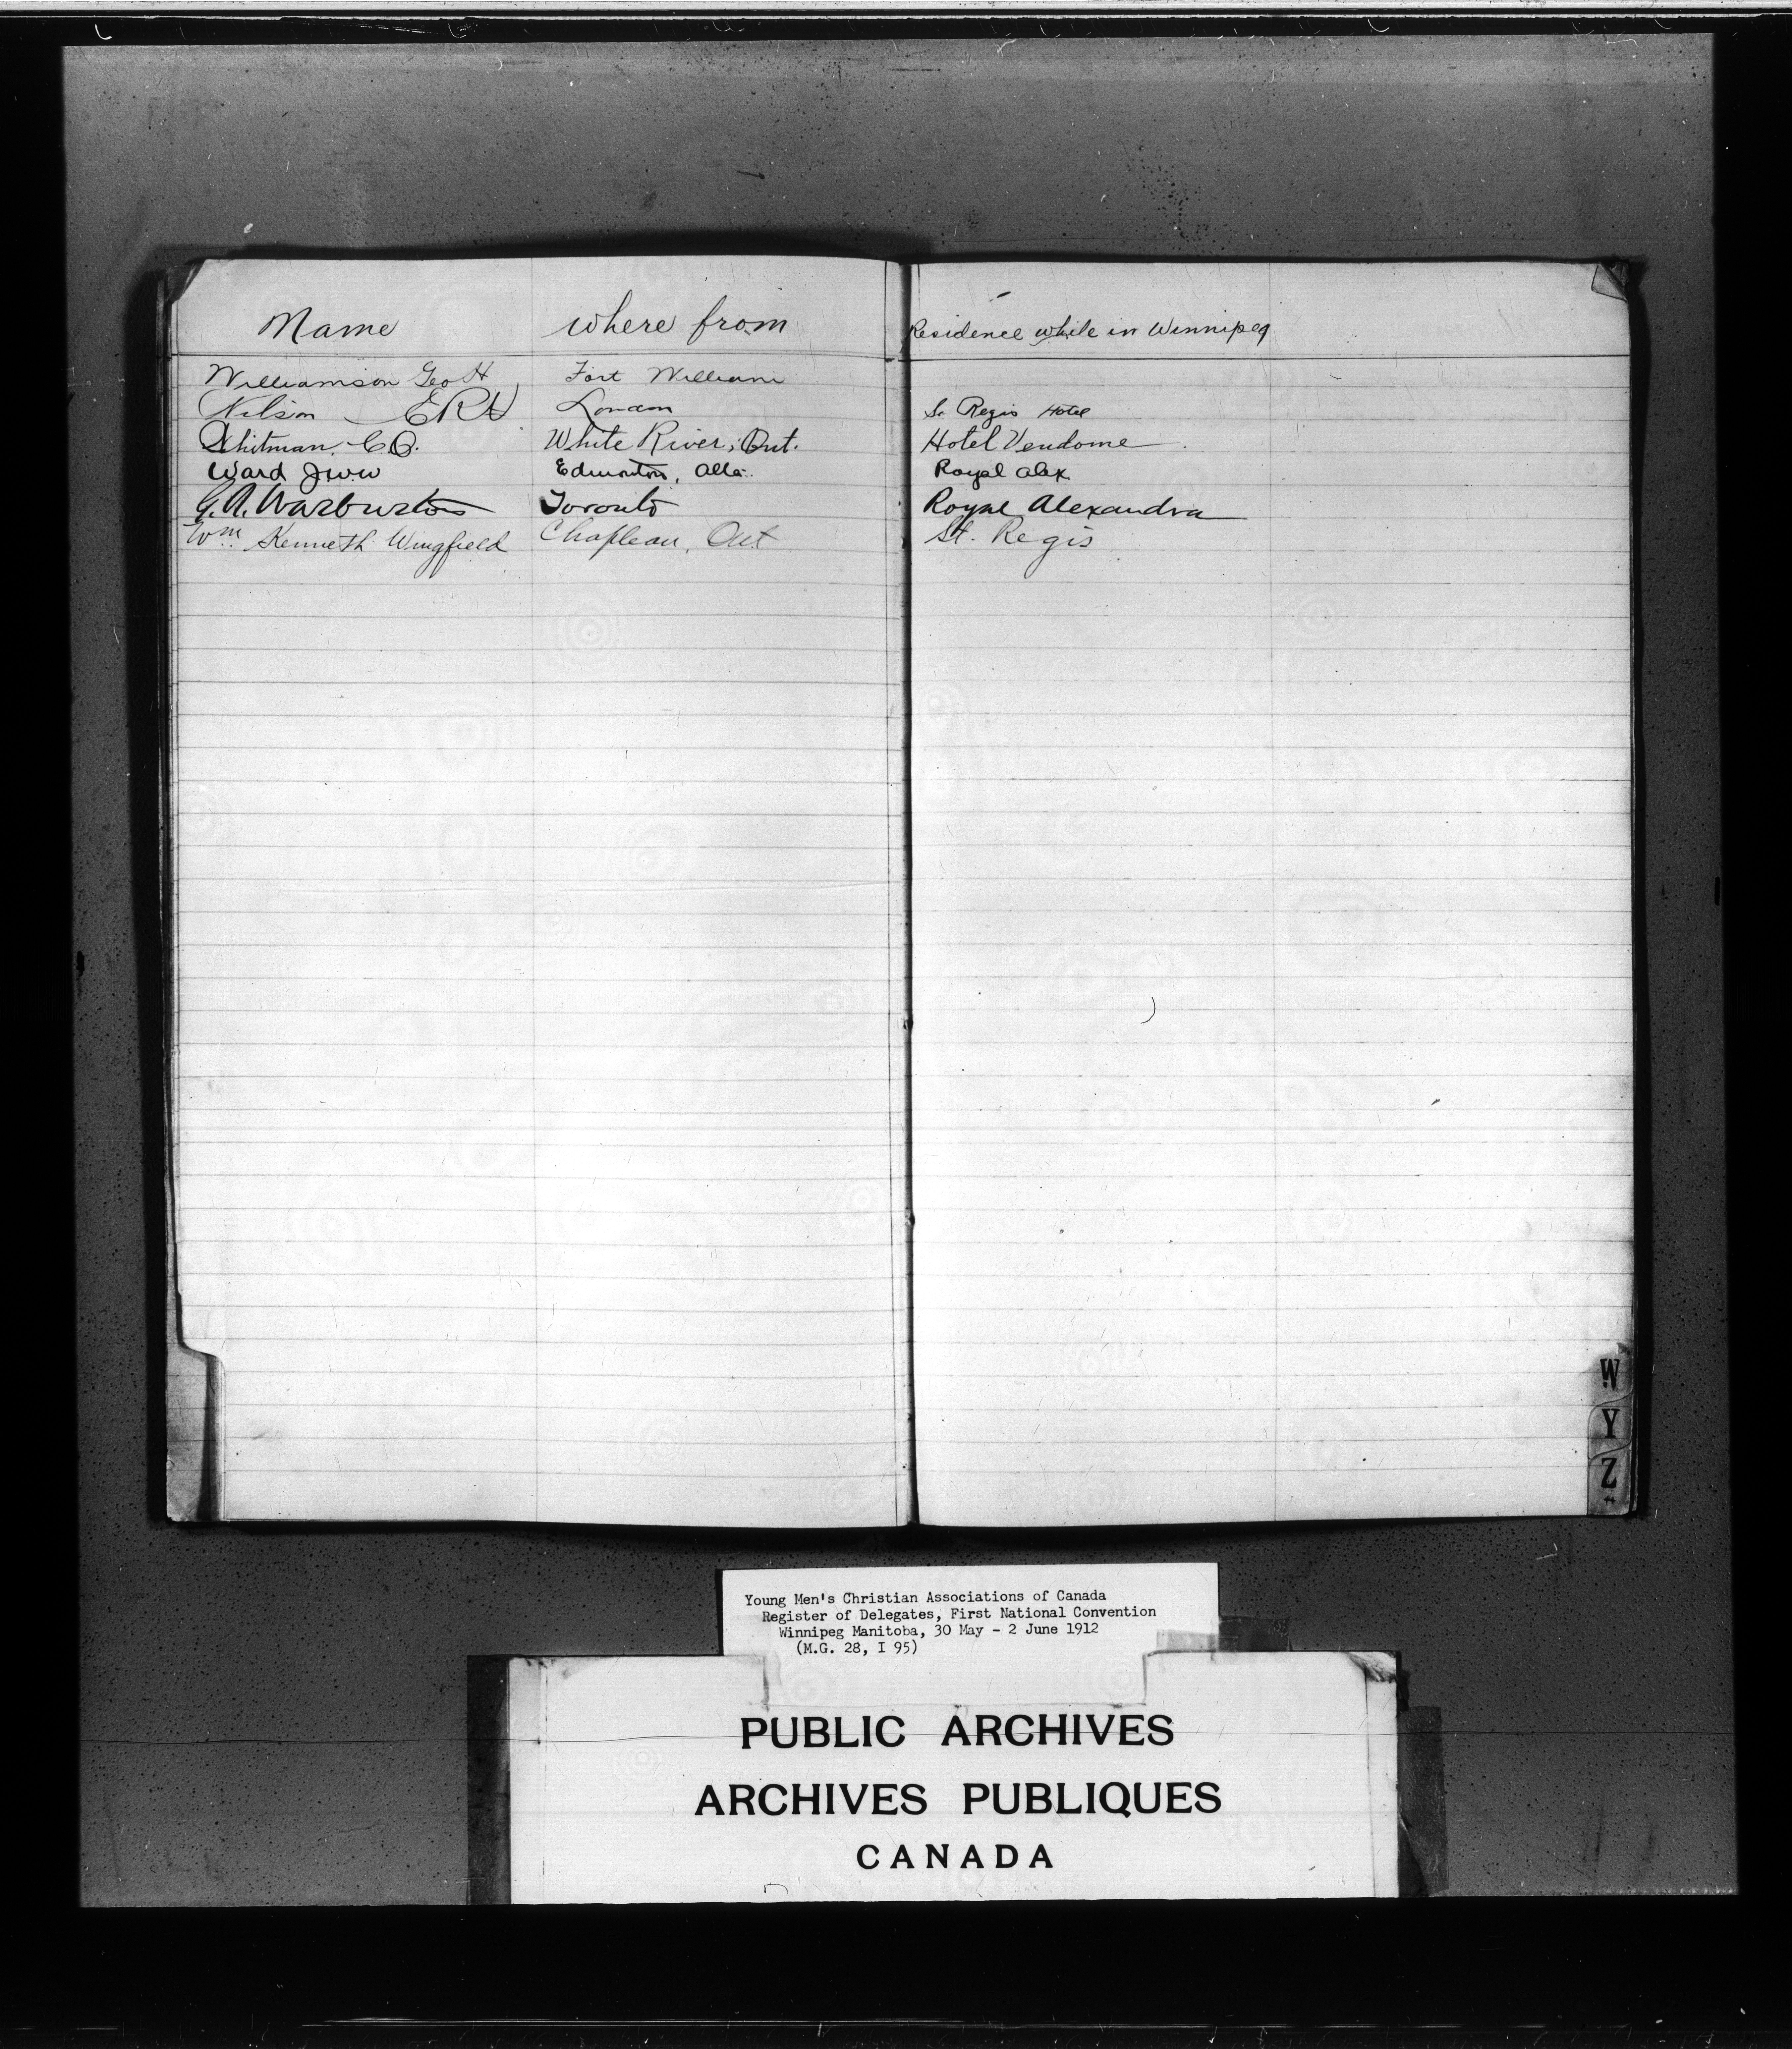 Name where from Residence while in Winnipeg
Williamson Geo H Fort William
Wilson E R H London St Regis Hotel
Whitman, C.O. White River, Ont. Hotel Vendome
Ward J.W.W Edmonton, Alta. Royal Alex.
G. A. Warburton Toronto Royal Alexandra
Wm. Kenneth Wingfield Chapleau, Ont St. Regis
W
Y
Z
Young Men's Christian Associations of Canada
Register of Delegates, First National Convention
Winnipeg Manitoba, 30 May - 2 June 1912
(M.G. 28, I 95)
PUBLIC ARCHIVES
ARCHIVES PUBLIQUES
CANADA